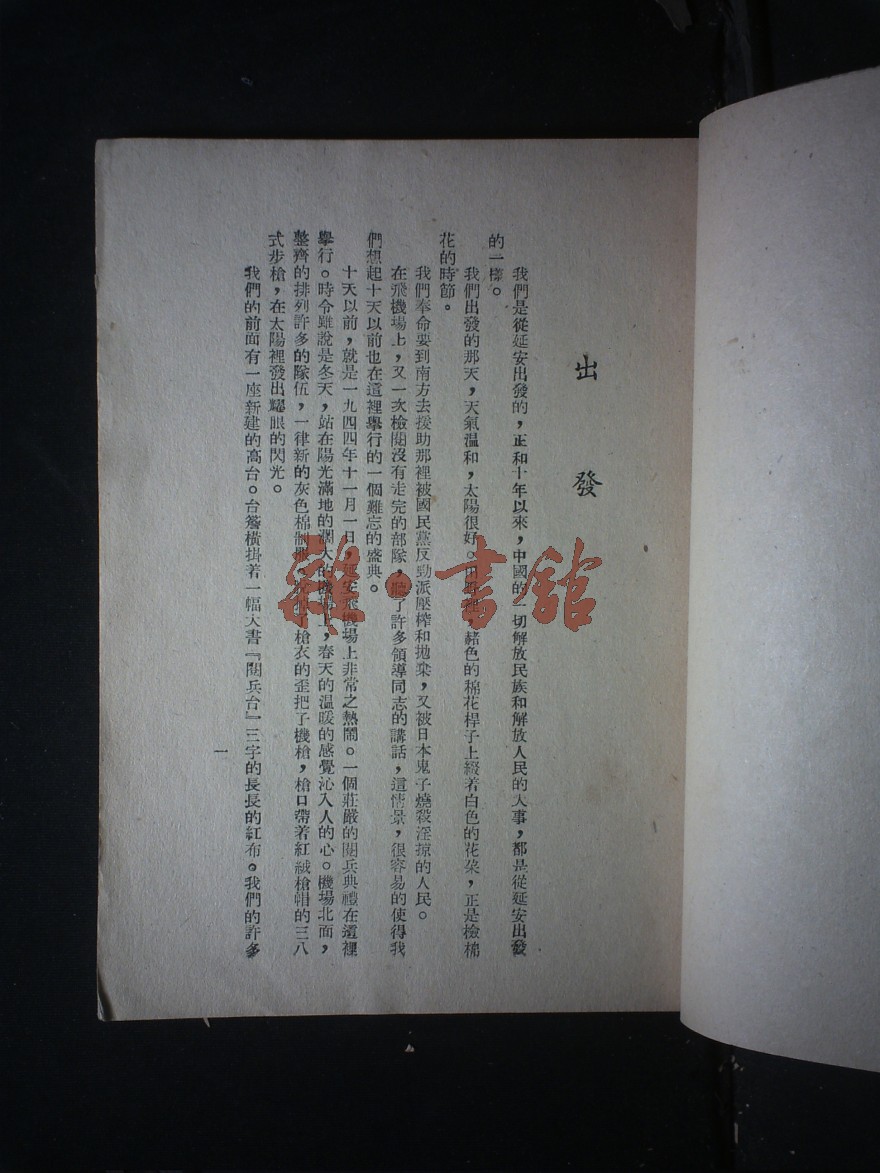 出發
我們是從延安出發的，正和十年以來，中國的一切解放民族和解放人民的大事，都是從延安出發
的一樣。
我們出發的那天，天氣溫和，太陽很好。田野裡，赭色的棉花桿子上綴着白色的花朶，正是檢棉
花的時節。
我們奉命要到南方去援助那裡被國民黨反動派壓榨和拋棄，又被日本鬼子燒殺淫掠的人民。
在飛機場上，又一次檢閱沒有走完的部隊，聽了許多領導同志的講話，這情景，很容易的使得我
們想起十天以前也在這裡舉行的一個難忘的盛典。
十天以前，就是一九四四年十一月一日，延安飛機場上非常之熱鬧。一個莊嚴的閱兵典禮在這裡
舉行。時令雖說是冬天，站在陽光滿地的濶大的機場上，春天的溫暖的感覺沁入人的心。機場北面，
整齊的排列許多的隊伍，一律新的灰色棉制服。脫掉了槍衣的歪把子機槍，槍口帶着紅絨槍帽的三八
式步槍，在太陽裡發出耀眼的閃光。
我們的前面有一座新建的高台。台簷橫掛着一幅大書『閱兵台』三字的長長的紅布。我們的許多
一
雜·書館